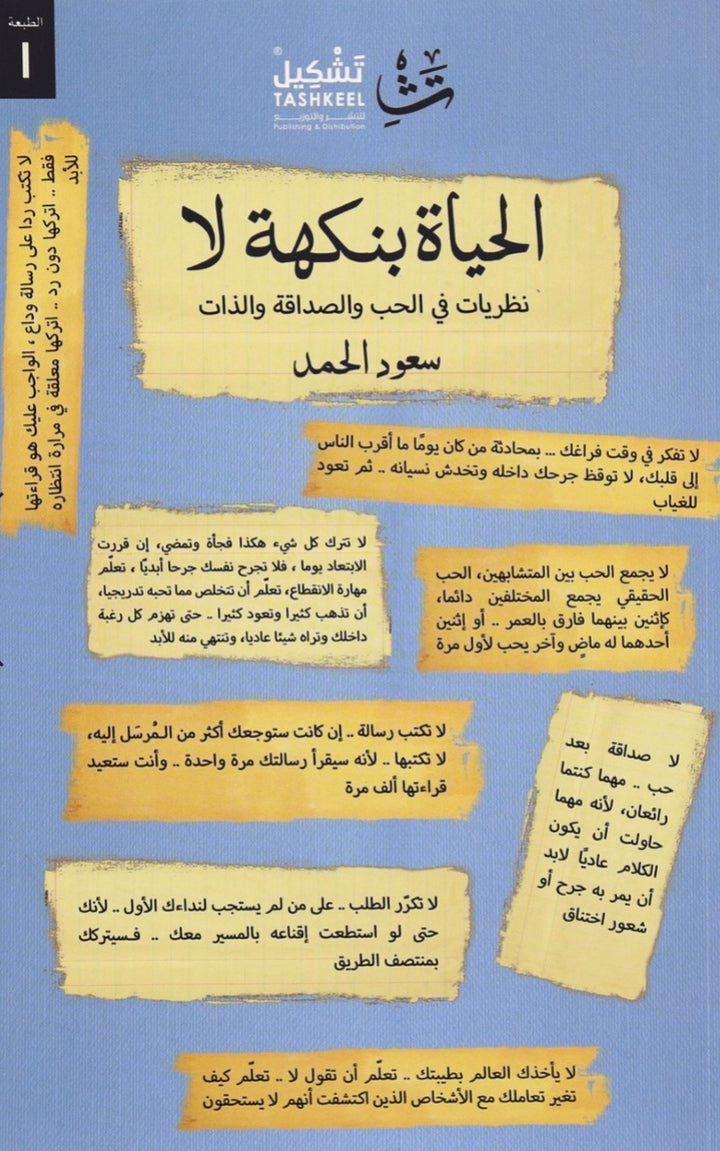 الطبعة
١
تَشْكِيل
TASHKEEL
للنشــر والتوزيــع
Publishing & Distribution
الحياة بنكهة لا
نظريات في الحب والصداقة والذات
سعود الحمد
لا تكتب ردا على رسالة وداع ، الواجب عليك هو قراءتها
فقط .. اتركها دون رد .. اتركها معلقة في مرارة انتظاره
للأبد
لا تفكر في وقت فراغك ... بمحادثة من كان يومًا ما أقرب الناس
إلى قلبك، لا توقظ جرحك داخله وتخدش نسيانه .. ثم تعود
للغياب
لا تترك كل شيء هكذا فجأة وتمضي، إن قررت
الابتعاد يوما ، فلا تجرح نفسك جرحا أبديًا ، تعلّم
مهارة الانقطاع، تعلّم أن تتخلص مما تحبه تدريجيا،
أن تذهب كثيرا وتعود كثيرا .. حتى تهزم كل رغبة
داخلك وتراه شيئا عاديا، وتنتهي منه للأبد
لا يجمع الحب بين المتشابهين، الحب
الحقيقي يجمع المختلفين دائما،
كإثنين بينهما فارق بالعمر .. أو إثنين
أحدهما له ماضٍ وآخر يحب لأول مرة
لا تكتب رسالة .. إن كانت ستوجعك أكثر من المُرسَل إليه،
لا تكتبها .. لأنه سيقرأ رسالتك مرة واحدة .. وأنت ستعيد
قراءتها ألف مرة
لا صداقة بعد
حب .. مهما كنتما
رائعان، لأنه مهما
حاولت أن يكون
الكلام عاديًا لابد
أن يمر به جرح أو
شعور اختناق
لا تكرّر الطلب .. على من لم يستجب لنداءك الأول .. لأنك
حتى لو استطعت إقناعه بالمسير معك .. فسيتركك
بمنتصف الطريق
لا يأخذك العالم بطيبتك .. تعلّم أن تقول لا .. تعلّم كيف
تغير تعاملك مع الأشخاص الذين اكتشفت أنهم لا يستحقون